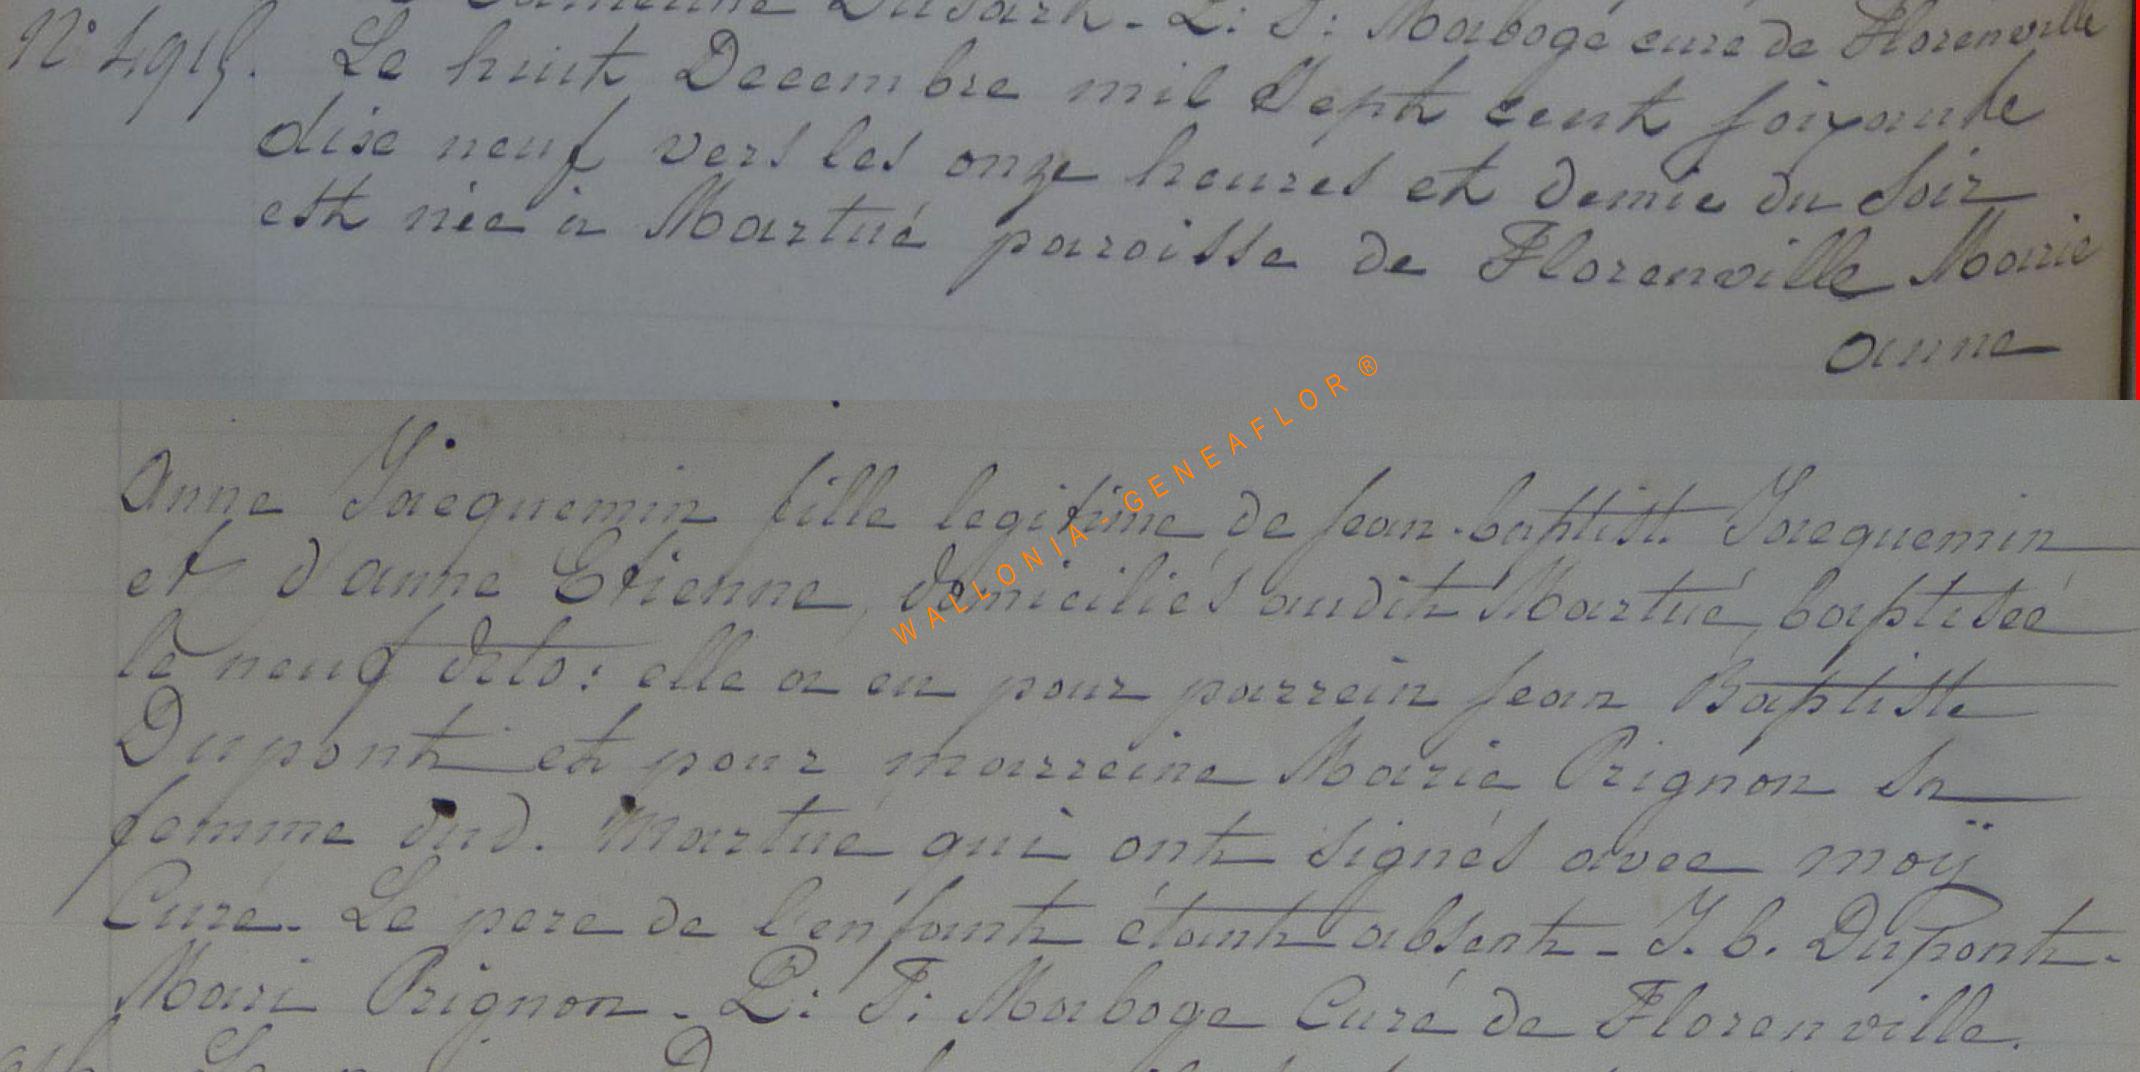 Dusart. L: J: Maboge curé de Florenville
N° 4915. Le huit Decembre mil Sept cent soixante
dise neuf vers les onze heures et demie du soir
est née à Martué paroisse de Florenville Marie
anne
Anne Jacquemin fille legitime de Jean-baptist. Jacquemin
et d'anne Etienne, domiciliés audit Martué, baptiseé
le neuf dito: elle a eu pour parrein Jean Baptiste
Dupont et pour marreine Marie Prignon sa
femme dud. Martué qui ont signés avec moÿ
Curé. Le pere de l'enfant étant absent - J. b. Dupont.
Mari Prignon. L: J: Maboge Curé de Florenville.
WALLONIA-GENEAFLOR ®